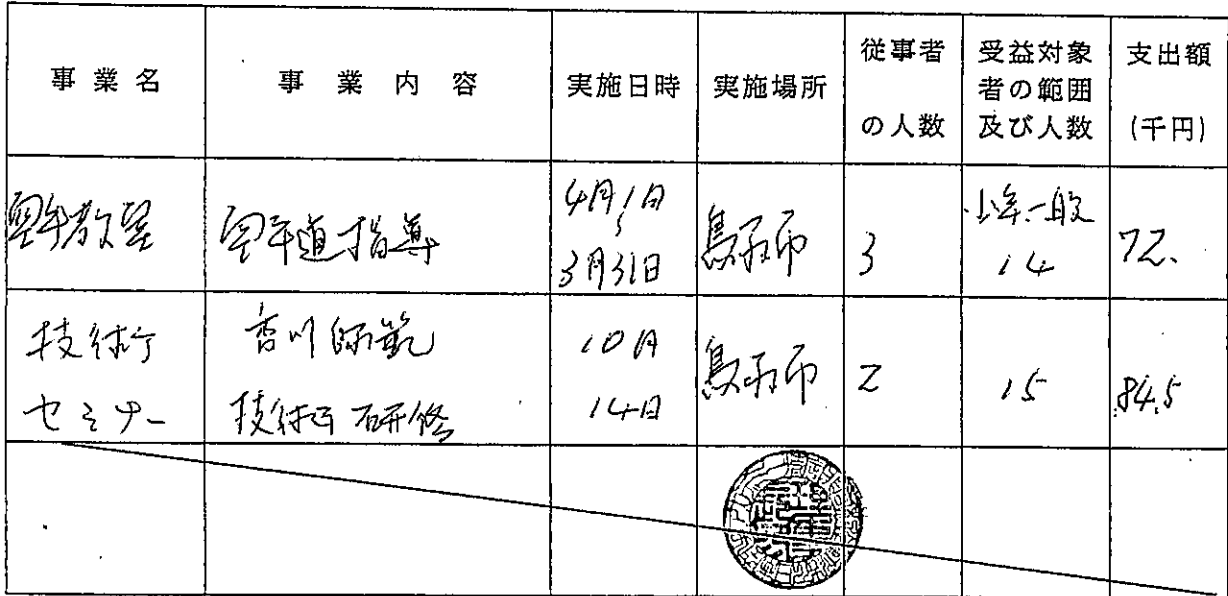 事業名 事業内容 実施日時 実施場所 従事者の人数 受益対象者の範囲及び人数 支出額(千円)
空手教室 空手道指導 4月1日〜3月31日 鳥羽市 3 少年、一般 14 72.
技術セミナー 香川師範 技術研修 10月14日 鳥羽市 2 15 84.5